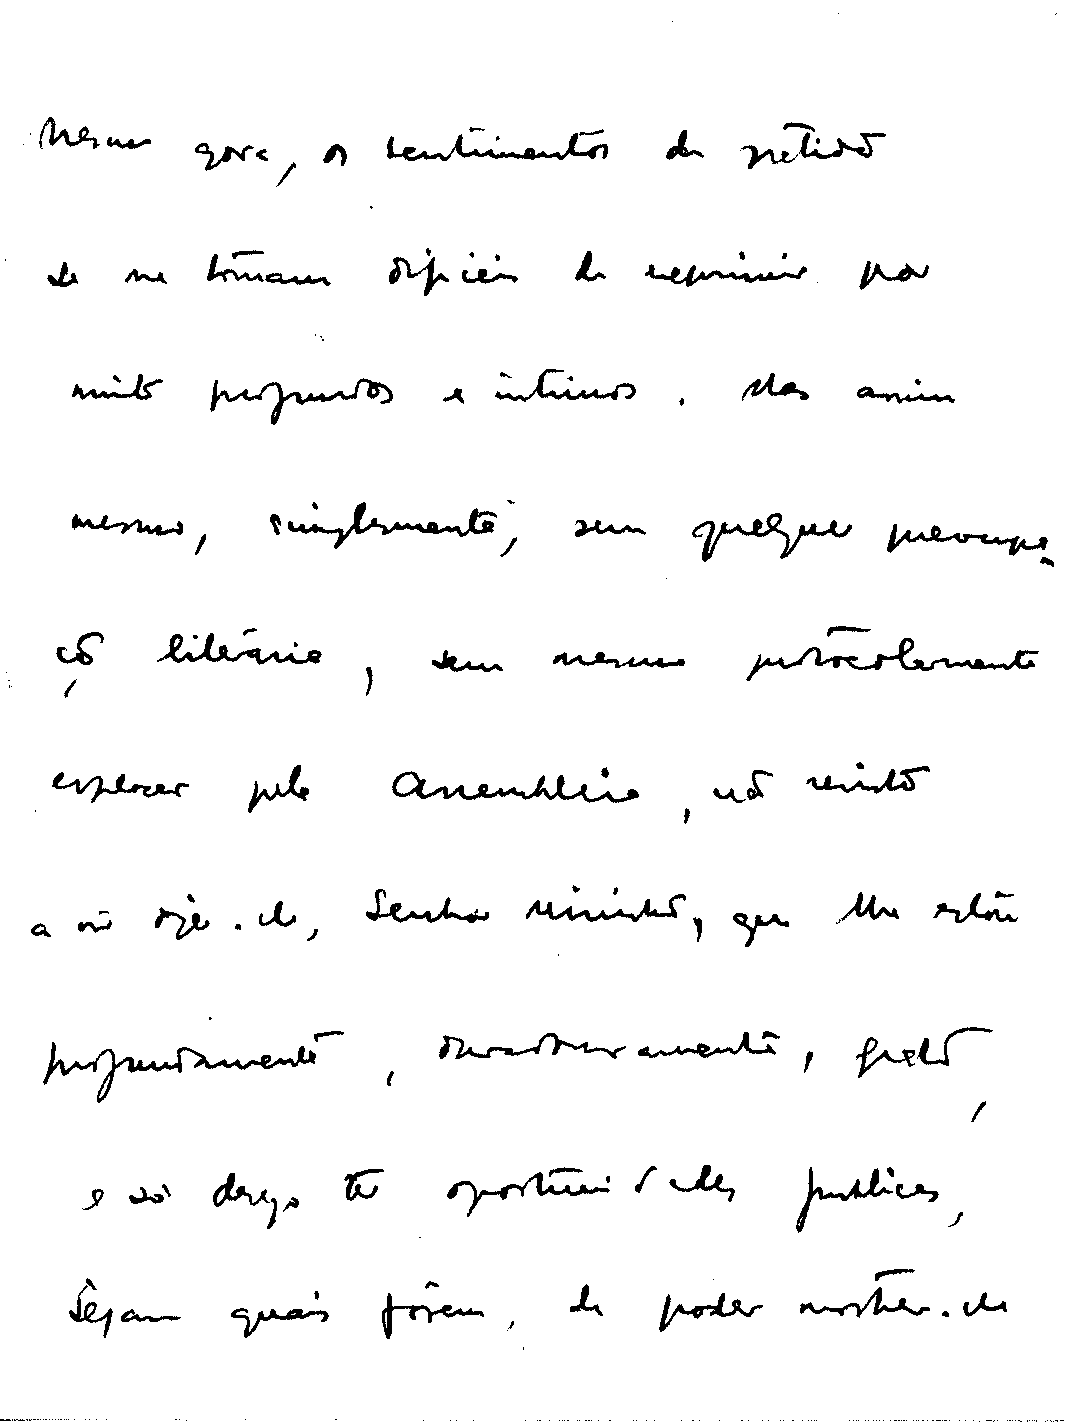 Mesmo agora, os sentimentos de gratidão
se me tornam difíceis de exprimir por
muito profundos e íntimos. Mas assim
mesmo, simplesmente, sem qualquer preocupa-
ção literária, sem mesmo protocolarmente
esperar pela Assembleia, não resisto
a vir dizer-lhe, Senhor Ministro, que lhe estou
profundamente, grato,
e só desejo ter oportunidades publicas,
sejam quais fôrem, de poder mostrar-lhe